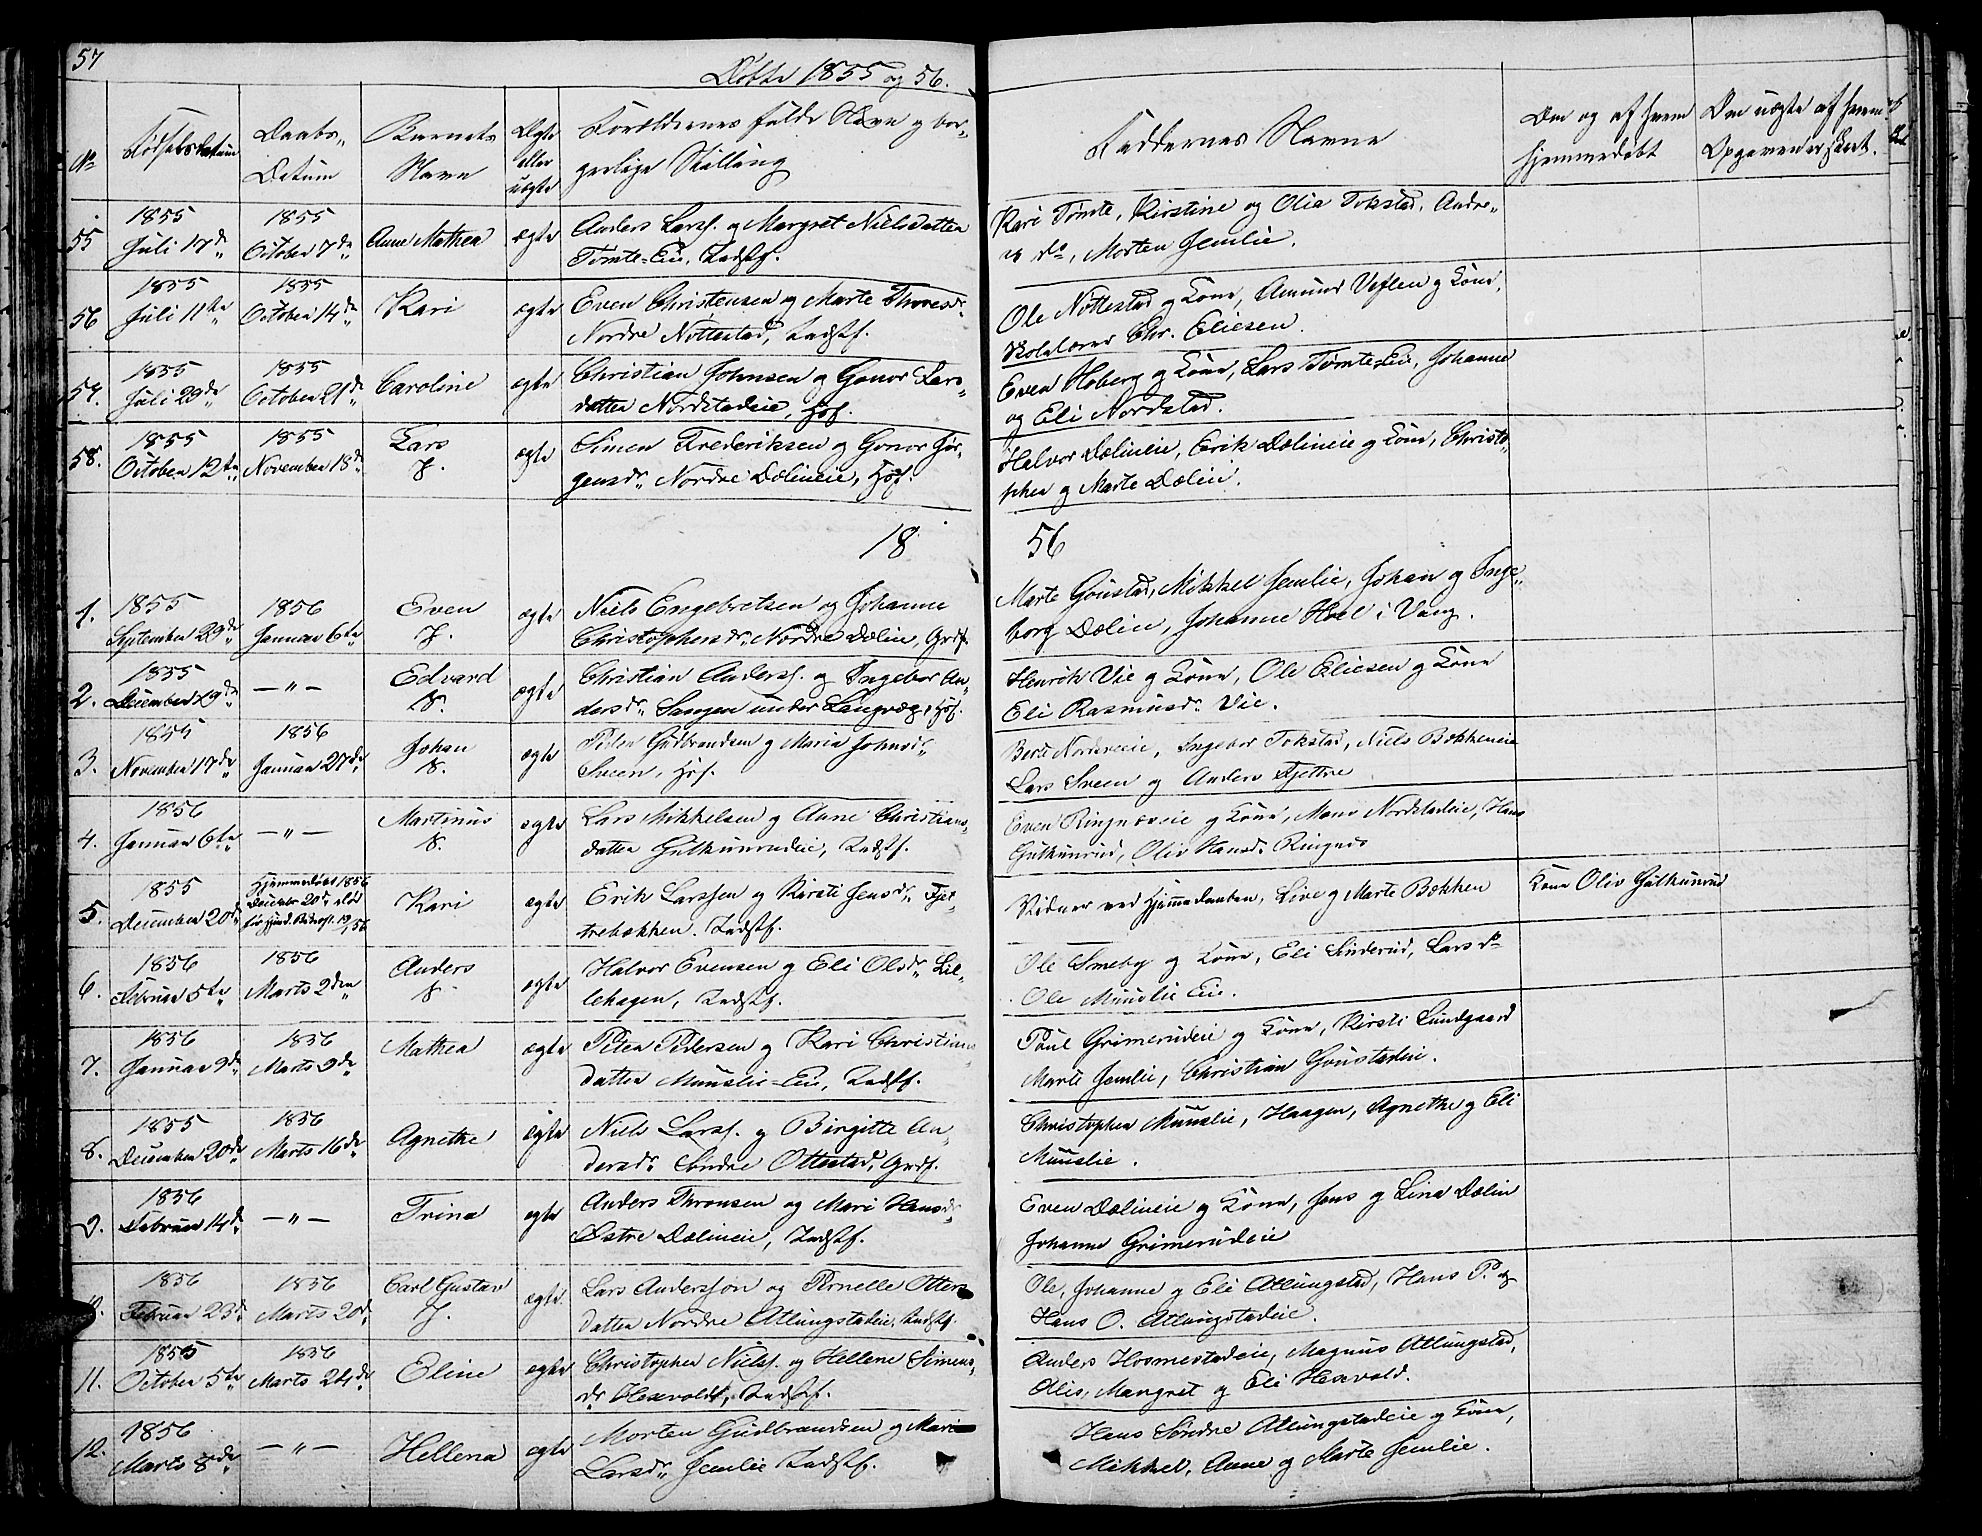 57
Døbte 1855 og 56.
No
Fødselsdatum
Daabs-
Datum
Barnets
Navn
Ægte
eller
uægte
Forældrenes fulde Navn og bor-
gerlige Stilling
Faddernes Navne
Om og af hvem
hjemmedøbt
Om uægte af hvem
Opgaven er skeet.
55
1855
Juli 17de
1855
October 7de
Anne Mathea
ægte
Anders Larss. og Margret Nielsdatter
Tomte-Eie, Indstf.
Kari Tomte, Kirstine og Olia Tokstad, Andre-
as do, Morten Jemlie.
56
1855
Juli 11te
1855
October 14de
Kari
ægte
Even Christensen og Marte Thoresdr.
Nordre Nøttestad, Indstf.
Ole Nøttestad og Kone, Amund Veflen og Kone,
Skolelærer Chr. Eliesen.
57.
1855
Juli 29de
1855
October 21de
Caroline
ægte
Christian Johnsen og Gonor Lars-
datter Nordstadeie, Hsf.
Even Hoberg og Kone, Lars Tomte-Eie, Johanne
og Eli Nordstad.
58.
1855
October 12te
1855
November 18de
Lars
J.
ægte
Simen Frederiksen og Gonor Jør-
gensdr. Nordre Dælineie, Hsf.
Halvor Dælineie, Erik Dælineie og Kone, Christo-
pher og Marte Dælin.
18 56
1.
1855
September 29de
1856
Januar 6te
Even
J.
ægte
Niels Engebretsen og Johanne
Christophersdr. Nordre Dælin, Grdf.
Marte Goustad, Mikkel Jemlie, Johan og Inge-
borg Dælin, Johanne Hoel i Vang.
2.
1855
December 29de
— " —
Edvard
V.
ægte
Christian Anderss. og Ingebor An-
dersdr. Sangen under Langvæg, Hsf.
Henrik Vie og Kone, Ole Eliesen og Kone
Eli Rasmusdr. Vie.
3.
1855
November 17de
1856
Januar 27de
Johan
V.
ægte
Peter Gudbrandsen og Maria Johnsdr.
Sveen, Hsf.
Berte Nordsveeie, Ingebor Tokstad, Niels Bekkeneie
Lars Sveen og Anders Fjettre
4.
1856
Januar 6te
— " —
Martinus
V.
ægte
Lars Mikkelsen og Anne Christians-
datter Gulkunrudeie, Indstf.
Even Ringnæseie og Kone, Mons Nordstadeie, Hans
Gulkunrud, Oliv Hansdr. Ringnes
5.
1855
December 20de
Hjemmedøbt 1856
Kari
ægte
Erik Larssen og Kirsti Jensdr. Fjet-
trebækken. Indstf.
Vidner ved hjemmedaaben, Live og Marte Bekken
Kone Oliv Gulkunrud
6.
1856
Februar 5te
1856
Marts 2den
Anders
V.
ægte
Halvor Evensen og Eli Olsdr. Lil-
lehagen, Indstf.
Ole Smeby og Kone, Eli Sinderud, Lars do
Ole Muuslie Eie.
7.
1856
Januar 9de
1856
Marts 9de
Mathea
ægte
Peter Pedersen og Kari Christians
datter Muuslie-Eie, Indstf.
Poul Grimerudeie og Kone, Kirsti Lundgaard
Marte Jemlie, Christian Goustadeie.
8.
1855
December 20de
1856
Marts 16de
Agnethe
ægte
Niels Larss. og Birgitte An-
dersdr. Søndre Ottestad, Grdf.
Christopher Muuslie, Haagen, Agnethe og Eli
Muuslie.
9.
1856
Februar 14de
— " —
Trina
ægte
Anders Thronsen og Mari Hansdr.
Østre Dælineie, Indstf.
Even Dælineie og Kone, Jens og Lina Dælin
Johanne Grimerudeie
10.
1856
Februar 23de
1856
Marts 20de
Carl Gustav
J.
ægte.
Lars Anderssøn og Pernelle Otters
datter Nordre Atlungstadeie, Indstf.
Ole, Johanne og Eli Atlungstad, Hans P. og
Hans O. Atlungstadeie.
11.
1855
October 5te
1856
Marts 24de
Eline
ægte
Christopher Nielss. og Hellene Simens-
dr. Hexevoldt, Indstf.
Anders Hosmestadeie, Magnus Atlungstad,
Olis, Mangret og Eli Hexevold.
12.
1856
Marts 8de
— " —
Hellena
ægte
Morten Gudbrandsen og Mari
Larsdr. Jemlie Indstf.
Hans Søndre Atlungstadeie og Kone,
Mikkel, Anne og Marte Jemlie.